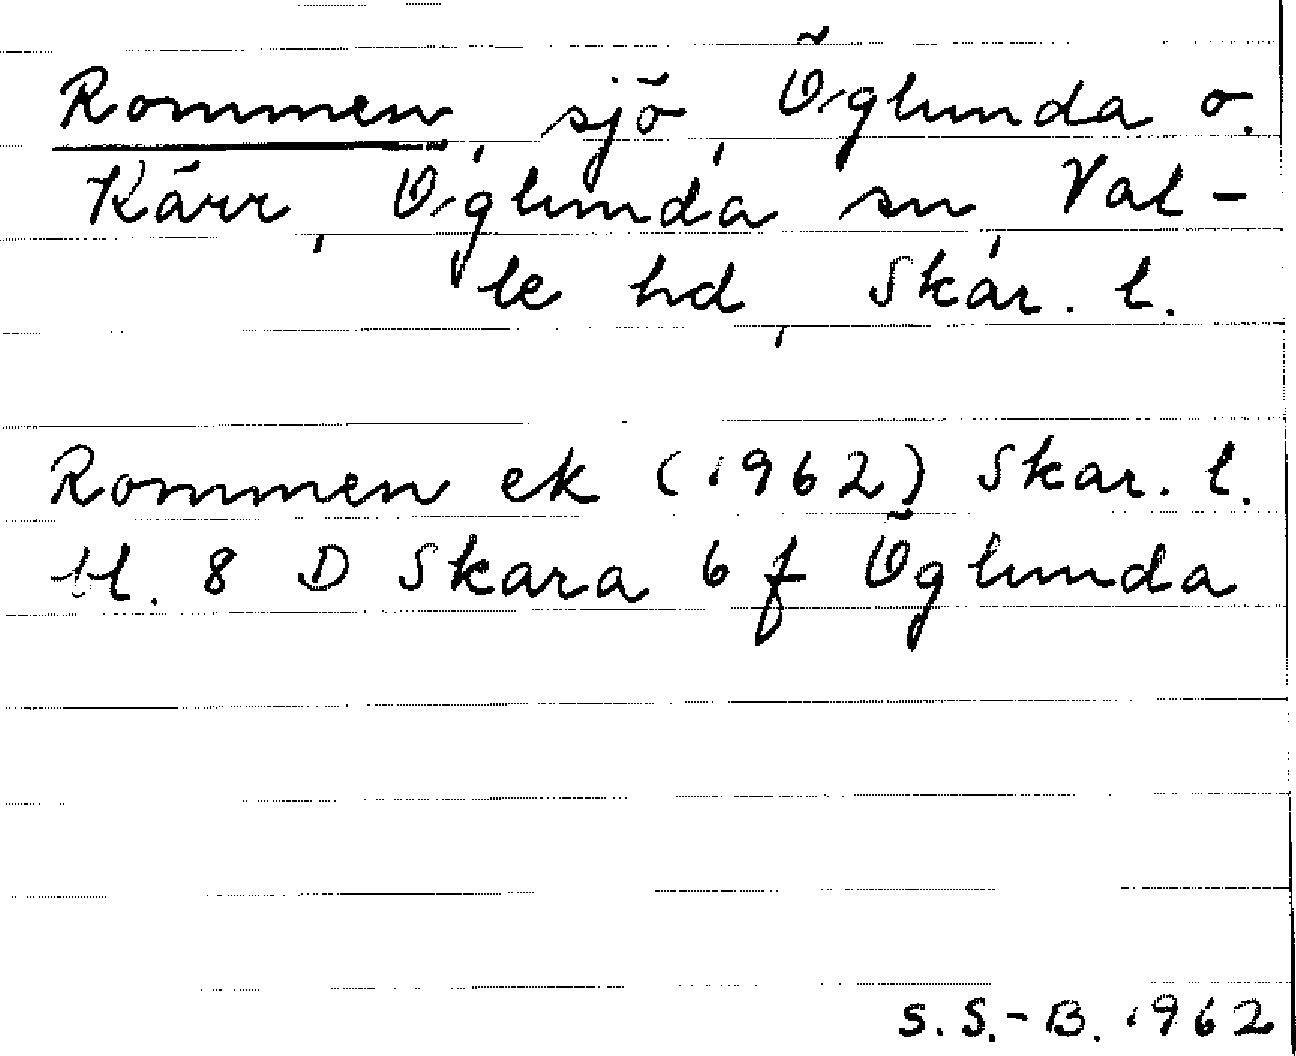 Rommen, sjö, Öglunda o.
Kärr, Öglunda sn, Val-
le hd, Skar. l.
Rommen ek (1962) Skar. l.
bl. 8 D Skara 6 f Öglunda
S. S.-B. 1962